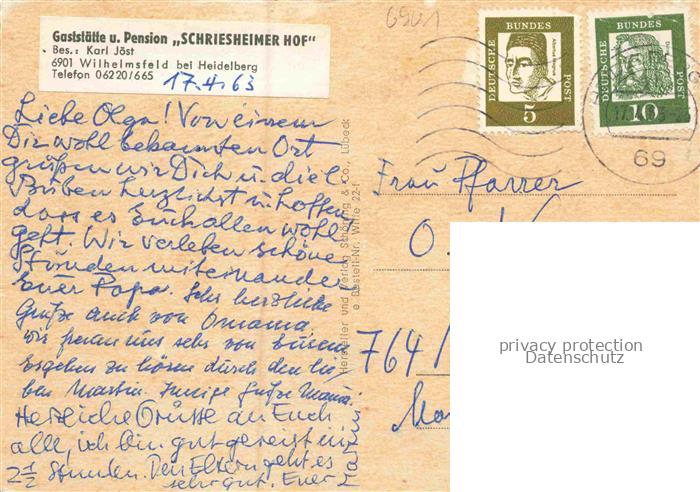 6901
Gaststätte u. Pension „SCHRIESHEIMER HOF"
Bes.: Karl Jöst
6901 Wilhelmsfeld bei Heidelberg
Telefon 06220/665
17.4.63
Liebe Olga! Von einem
Dir wohl bekannten Ort
grüßen wir Dich u. die l.
Buben herzlichst u. hoffen
dass es Euch allen wohl
geht. Wir verleben schöne
Stunden miteinander
Euer Papa. Sehr herzliche
Grüße auch von Omama.
wir freuen uns sehr von Eurem
Ergehen zu hören durch den lie-
ben Martin. Innige Grüße Mama.
Herzliche Grüsse an Euch
alle, ich bin gut gereist in
2 1/2 Stunden. Den Eltern geht es
sehr gut. Euer Martin
Hersteller und Verlag Schöning & Co., Lübeck
Bestell-Nr. Wilfe 22-f
DEUTSCHE BUNDES POST
5
DEUTSCHE BUNDES POST
10
69
Frau Pfarrer
O.
764/
privacy protection
Datenschutz